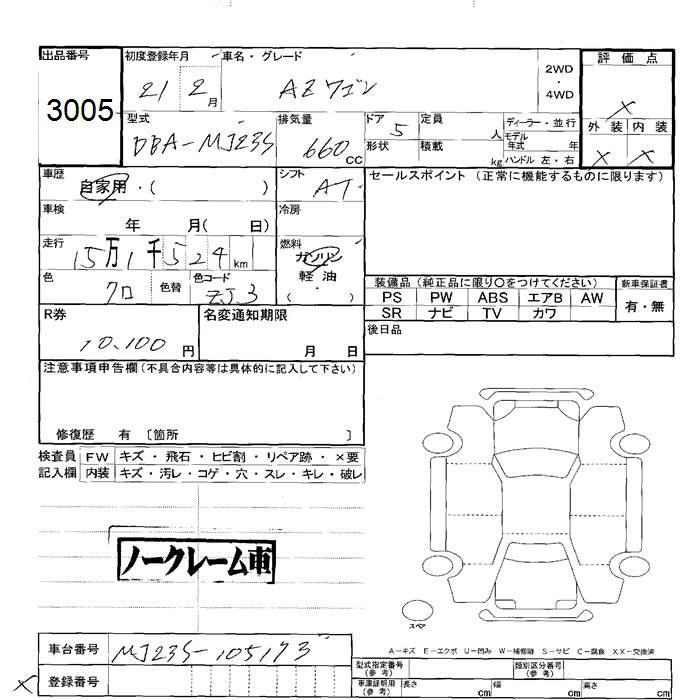 出品番号 初度登録年月 車名・グレード 評価点
3005 21 2月 AZワゴン 2WD・4WD ×
型式 排気量 ドア 定員 ディーラー・並行 外装 内装
DBA-MJ23S 660CC 5 人 モデル年式 年 × ×
形状 積載 kg ハンドル 左・右
車歴 シフト セールスポイント(正常に機能するものに限ります)
自家用・( ) AT
車検 冷房
年 月( 日)
走行 燃料
15万1千524km ガソリン
軽・油
( )
色 色替 色コード 装備品(純正品に限り○をつけてください) 新車保証書
クロ ZJ3 PS PW ABS エアB AW 有・無
SR ナビ TV カワ
R券 名変通知期限 後日品
10,100円 月 日
注意事項申告欄(不具合内容等は具体的に記入して下さい)
修復歴 有 〔箇所 〕
検査員 FW キズ・飛石・ヒビ割・リペア跡・×要
記入欄 内装 キズ・汚レ・コゲ・穴・スレ・キレ・破レ
ノークレーム車
スペア
A-キズ E-エクボ U-凹み W-補修跡 S-サビ C-腐食 XX-交換済
車台番号 MJ23S-105173
型式指定番号(参考) 類別区分番号(参考)
× 登録番号 車庫証明用(参考) 長さ cm 幅 cm 高さ cm